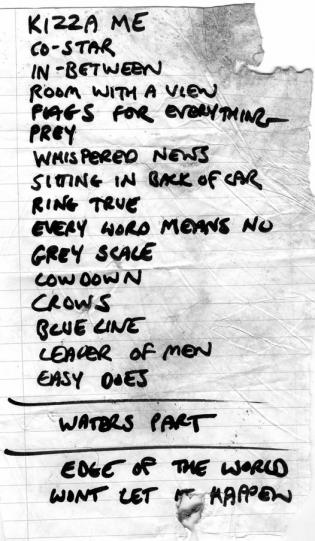 KIZZA ME
CO-STAR
IN-BETWEEN
ROOM WITH A VIEW
FLAGS FOR EVERYTHING
PREY
WHISPERED NEWS
SITTING IN BACK OF CAR
RING TRUE
EVERY WORD MEANS NO
GREY SCALE
LOWDOWN
CROWS
BLUE LINE
LEADER OF MEN
EASY DOES
WATERS PART
EDGE OF THE WORLD
WONT LET IT HAPPEN